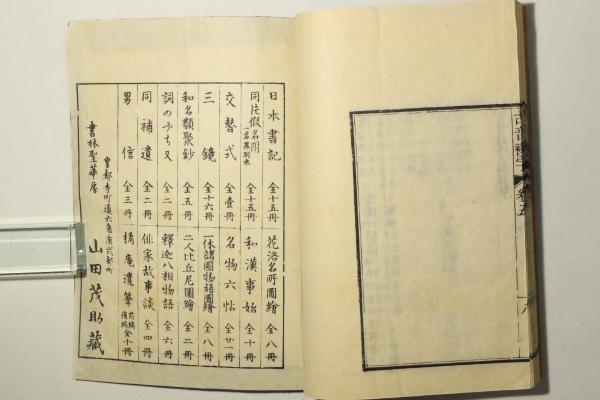 日本書記 全十五冊
同片假名附 一名黒羽本 全十五冊
交替式 全壹冊
三鏡 全十六冊
和名類聚鈔 全五冊
詞のやちまた 全二冊
同補遺 全二冊
男信 全三冊
花洛名所圖繪 全八冊
和漢事始 全十冊
名物六帖 全廿一冊
一休諸國物語圖繪 全八冊
二人比丘尼圖繪 全二冊
釋迦八相物語 全六冊
俳家故事談 全四冊
橘庵遺筆 前編後編 全十冊
皇都寺町通六角南式部町
書林聖華房 山田茂助藏
卷五